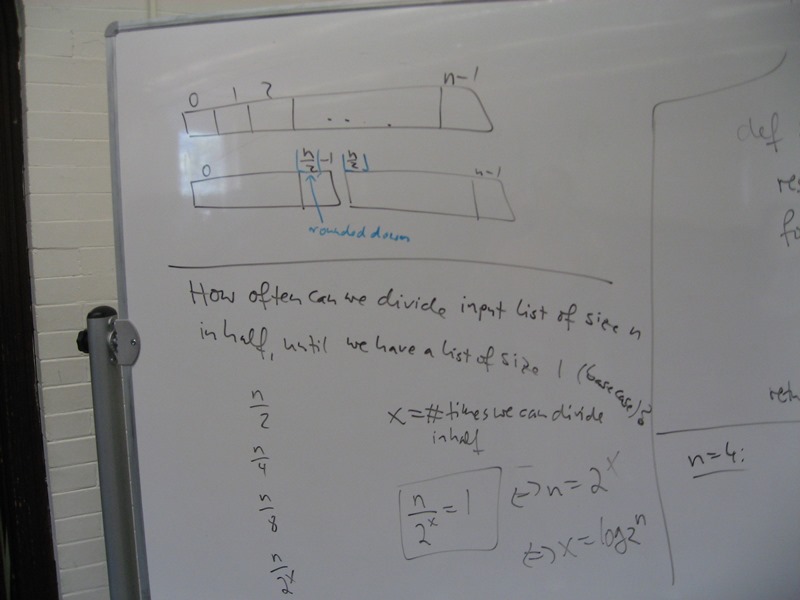 0 1 2 n-1
0 ⌊n/2⌋-1 ⌊n/2⌋ n-1
rounded down
How often can we divide input list of size n
in half, until we have a list of size 1 (base case)?
n/2
x = # times we can divide
in half
n/4
n/8
n/2^x = 1
⇔ n = 2^x
⇔ x = log2^n
n/2^x
def
res
fo
retu
n=4: